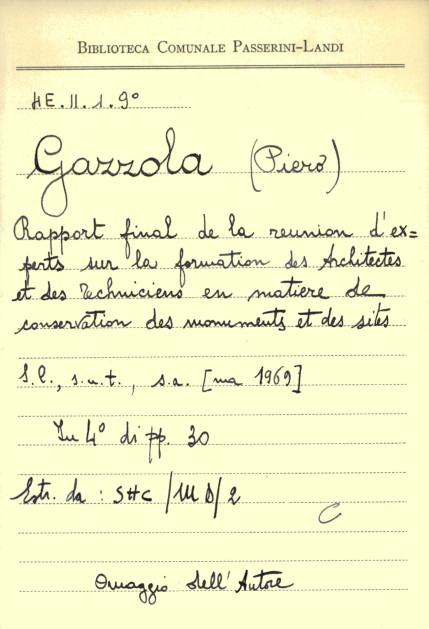 BIBLIOTECA COMUNALE PASSERINI-LANDI
4E.II.1.9°
Gazzola (Piero)
Rapport final de la reunion d'ex=
perts sur la formation des Architectes
et des Techniciens en matiere de
conservation des monuments et des sites
S.l., s.n.t., s.a. [ma 1969]
In 4° di pp. 30
Estr. da: SHC/MD/2
C
Omaggio dell'Autore